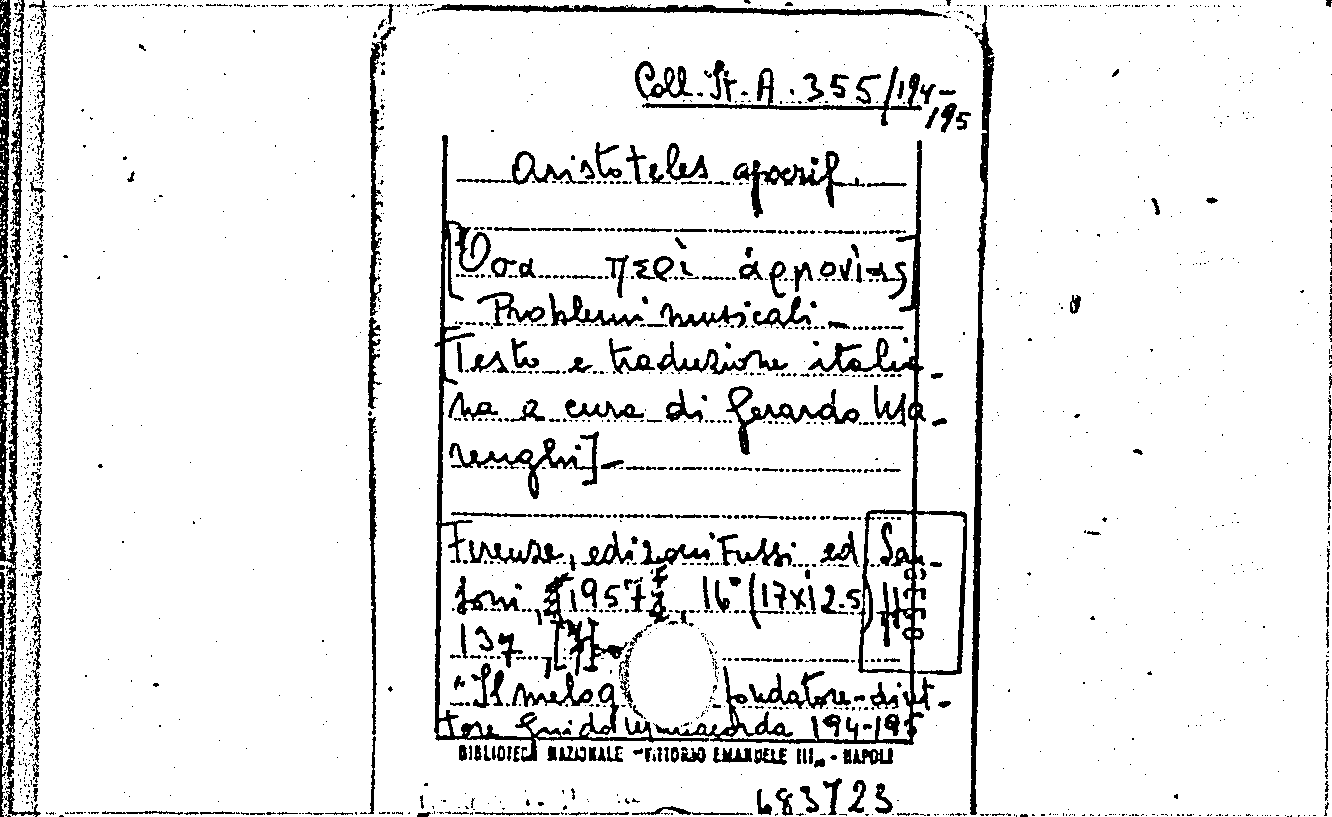 Coll. It. A. 355/194-
195
Aristoteles apocrif.
[Ὅσα περὶ ἁρμονίας]
Problemi musicali -
[Testo e traduzione italia-
na a cura di Gerardo Ma-
renghi] -
Firenze, edizioni Fussi ed San-
soni, [1957] 16° (17x12.5)
137, [7]
"Il melog fondatore-diret-
tore Guido M. 194-195
BIBLIOTECA NAZIONALE "VITTORIO EMANUELE III" - NAPOLI
683723